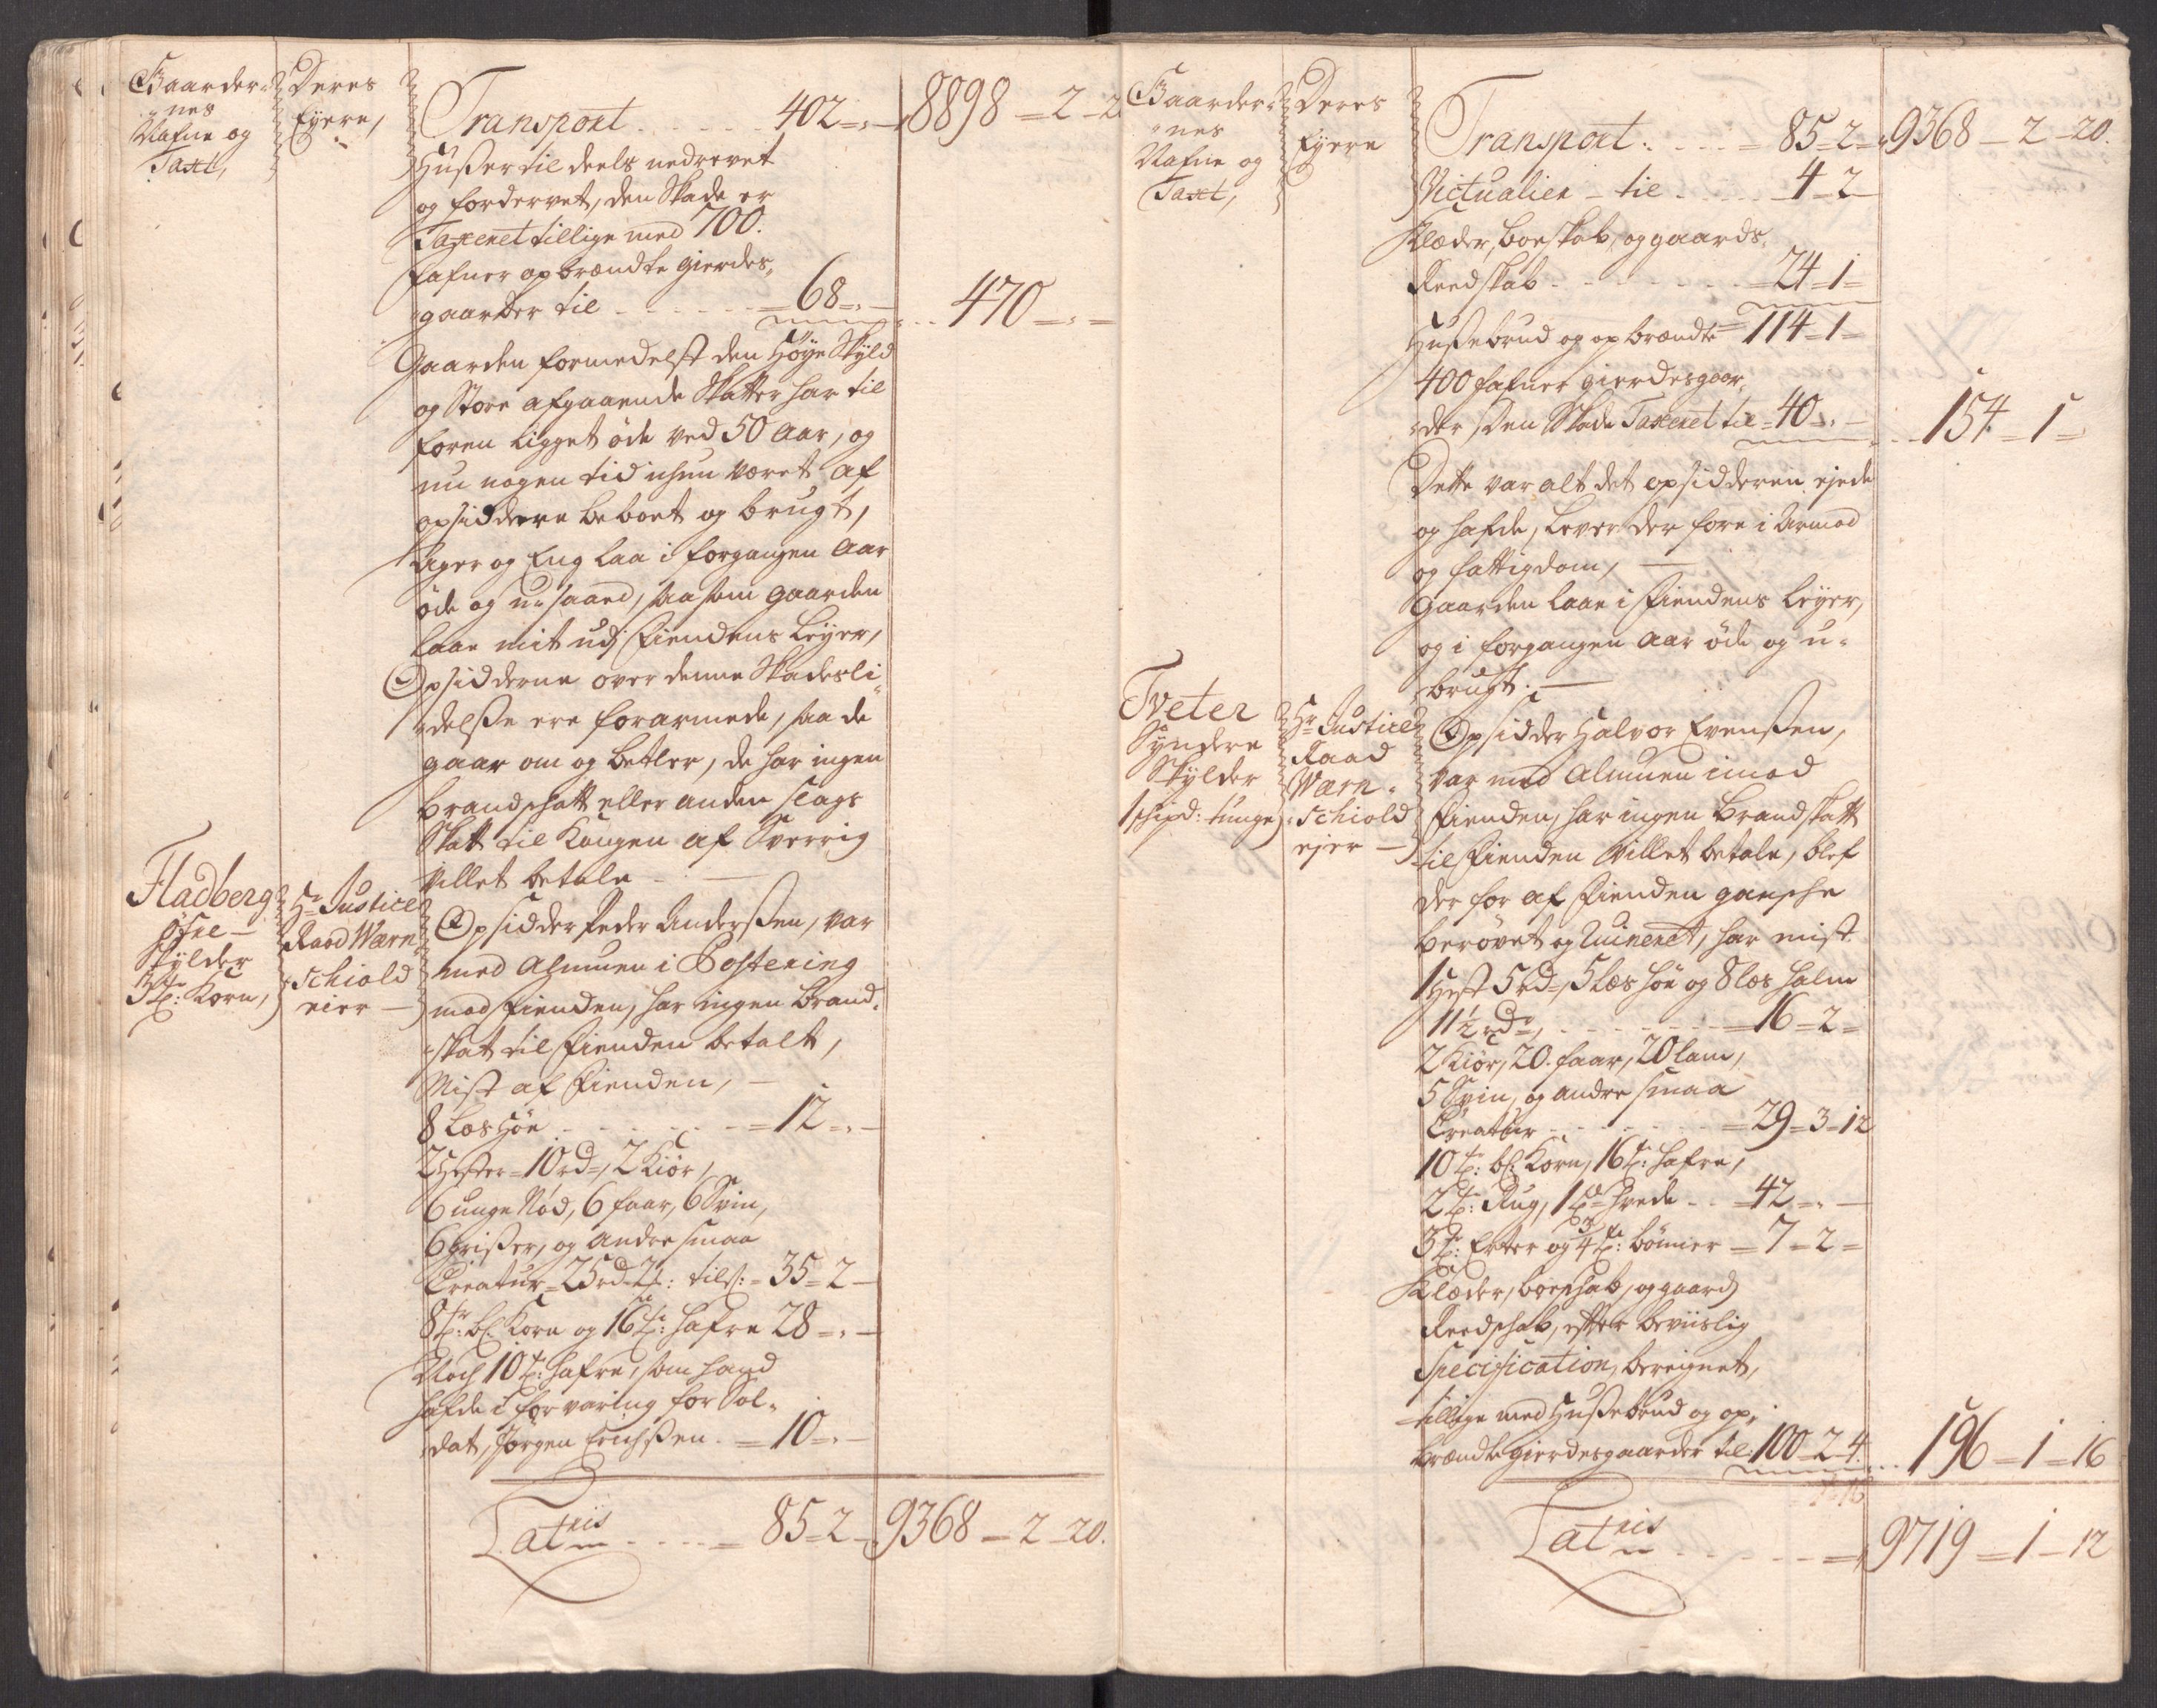 Gaarder-
"nes
Nafne og
Taxt,
Deres
Eyere,
Transport . . . . . . 402 = „ — 8898 — 2 — 2
Hußer til deels nedrevet
og fordervet, den Skade er
Taxeret tillige med 700.
fafner opbrændte gierdes„
„gaarder til . . . . . . = 68 = „ — . . 470 = „ =
Gaarden formedelst den Høye Skyld
og Store afgaaende Skatter har til
foren ligget øde ved 50 Aar, og
nu nogen tid ihun været af
opsiddere beboet og brugt,
Ager og Eng laa i forgangen Aar
øde og u-saaed, saasom gaarden
laae mit udj Fiendens Leyer,
Opsidderne over denne Skadesli„
„delsße ere forarmede, saa de
gaar om og betler, de har ingen
brandschatt eller anden slags
Skatt til Kongen af Sverrig
villet betale —
Fladberg
øfre —
Skylder
3 tr: Korn,
Hr Justice
Raad Wærn
„schiold
eier —
Opsidder Peder Anderßen, var
med Almuen i Postering
mod Fienden, har ingen brand„
„skat til Fienden betalt,
Mist af Fienden, —
8 Læs Høe . . . . . . = 12 = „ —
2 Hester = 10 rd =, 2 Kiør,
6 unge Nød, 6 faar, 6 Svin,
6 grißer, og andre smaa
Creatur = 25 rd 2 : tils: = 35 = 2 —
8 tr: bl: Korn og 16 tr: hafre 28 = „ —
Noch 10 t: hafre, som hand
hafde i forvaring for Sol„
„dat, Jørgen Erichßen . = 10 = „ —
Latris . . . . = 85 = 2 — 9368 — 2 — 20.
Gaarder„
"nes
Nafne og
Taxt,
Deres
Eyere
Transport . . . . . = 85 = 2 = „ 9368 — 2 — 20.
Victualier — til . . . . . 4 — 2
Klæder, boeskab, og gaards„
Reedskab . . . . . . . . = 24 = 1 =
Hußebrud og opbrændte = 114 = 1 =
400 fafner gierdesgaar„
„der, Den Skade Taxeret til = 40 = „ — . . 154 = 1 =
Dette var alt det opsidderen ejede
og hafde, lever der fore i Armod
og fattigdom, —
Gaarden laae i Fiendens Leyer,
og i forgangen Aar øde og u-
brugt. —
Tveter
Syndere
Skylder
1 schipd: tunge
Hr Justice
Raad
Wærn„
„schiold
ejer —
Opsidder Halvor Evenßen,
var med Almuen imod
Fienden, har ingen brandskatt
til Fienden villet betale, blef
der for af Fienden gansche
berøvet og Ruineret, har mist.
1 Hest 5 rd =, 5 Læs høe og 8 læs halm
11 1/2 rdr, . . . . . . . . = 16 = 2 =
2 Kiør, 20. faar, 20 lam,
5 Svin, og andre smaa
Creatur . . . . . . . = 29 = 3 = 12
10 t: bl: Korn, 16 t: hafre,
2 t: Rug, 1 t hvede . . = 42 = „ —
3 t: Erter og 3/4 t: bønner = 7 = 2 =
Klæder, boeschab, og gaards
Reedschab, efter beviislig
Specification, bereignet,
tillige med Hußebrud og op„
brændte gierdesgaarder til: 100 = 2 = 4. . . . 196 = 1 = 16
Latris . . . . . = 9719 = 1 — 12